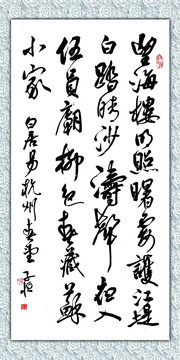 望海樓明照曙霞護江堤
白踏晴沙濤聲夜入
伍員廟柳色春藏蘇
小家 白居易杭州春望